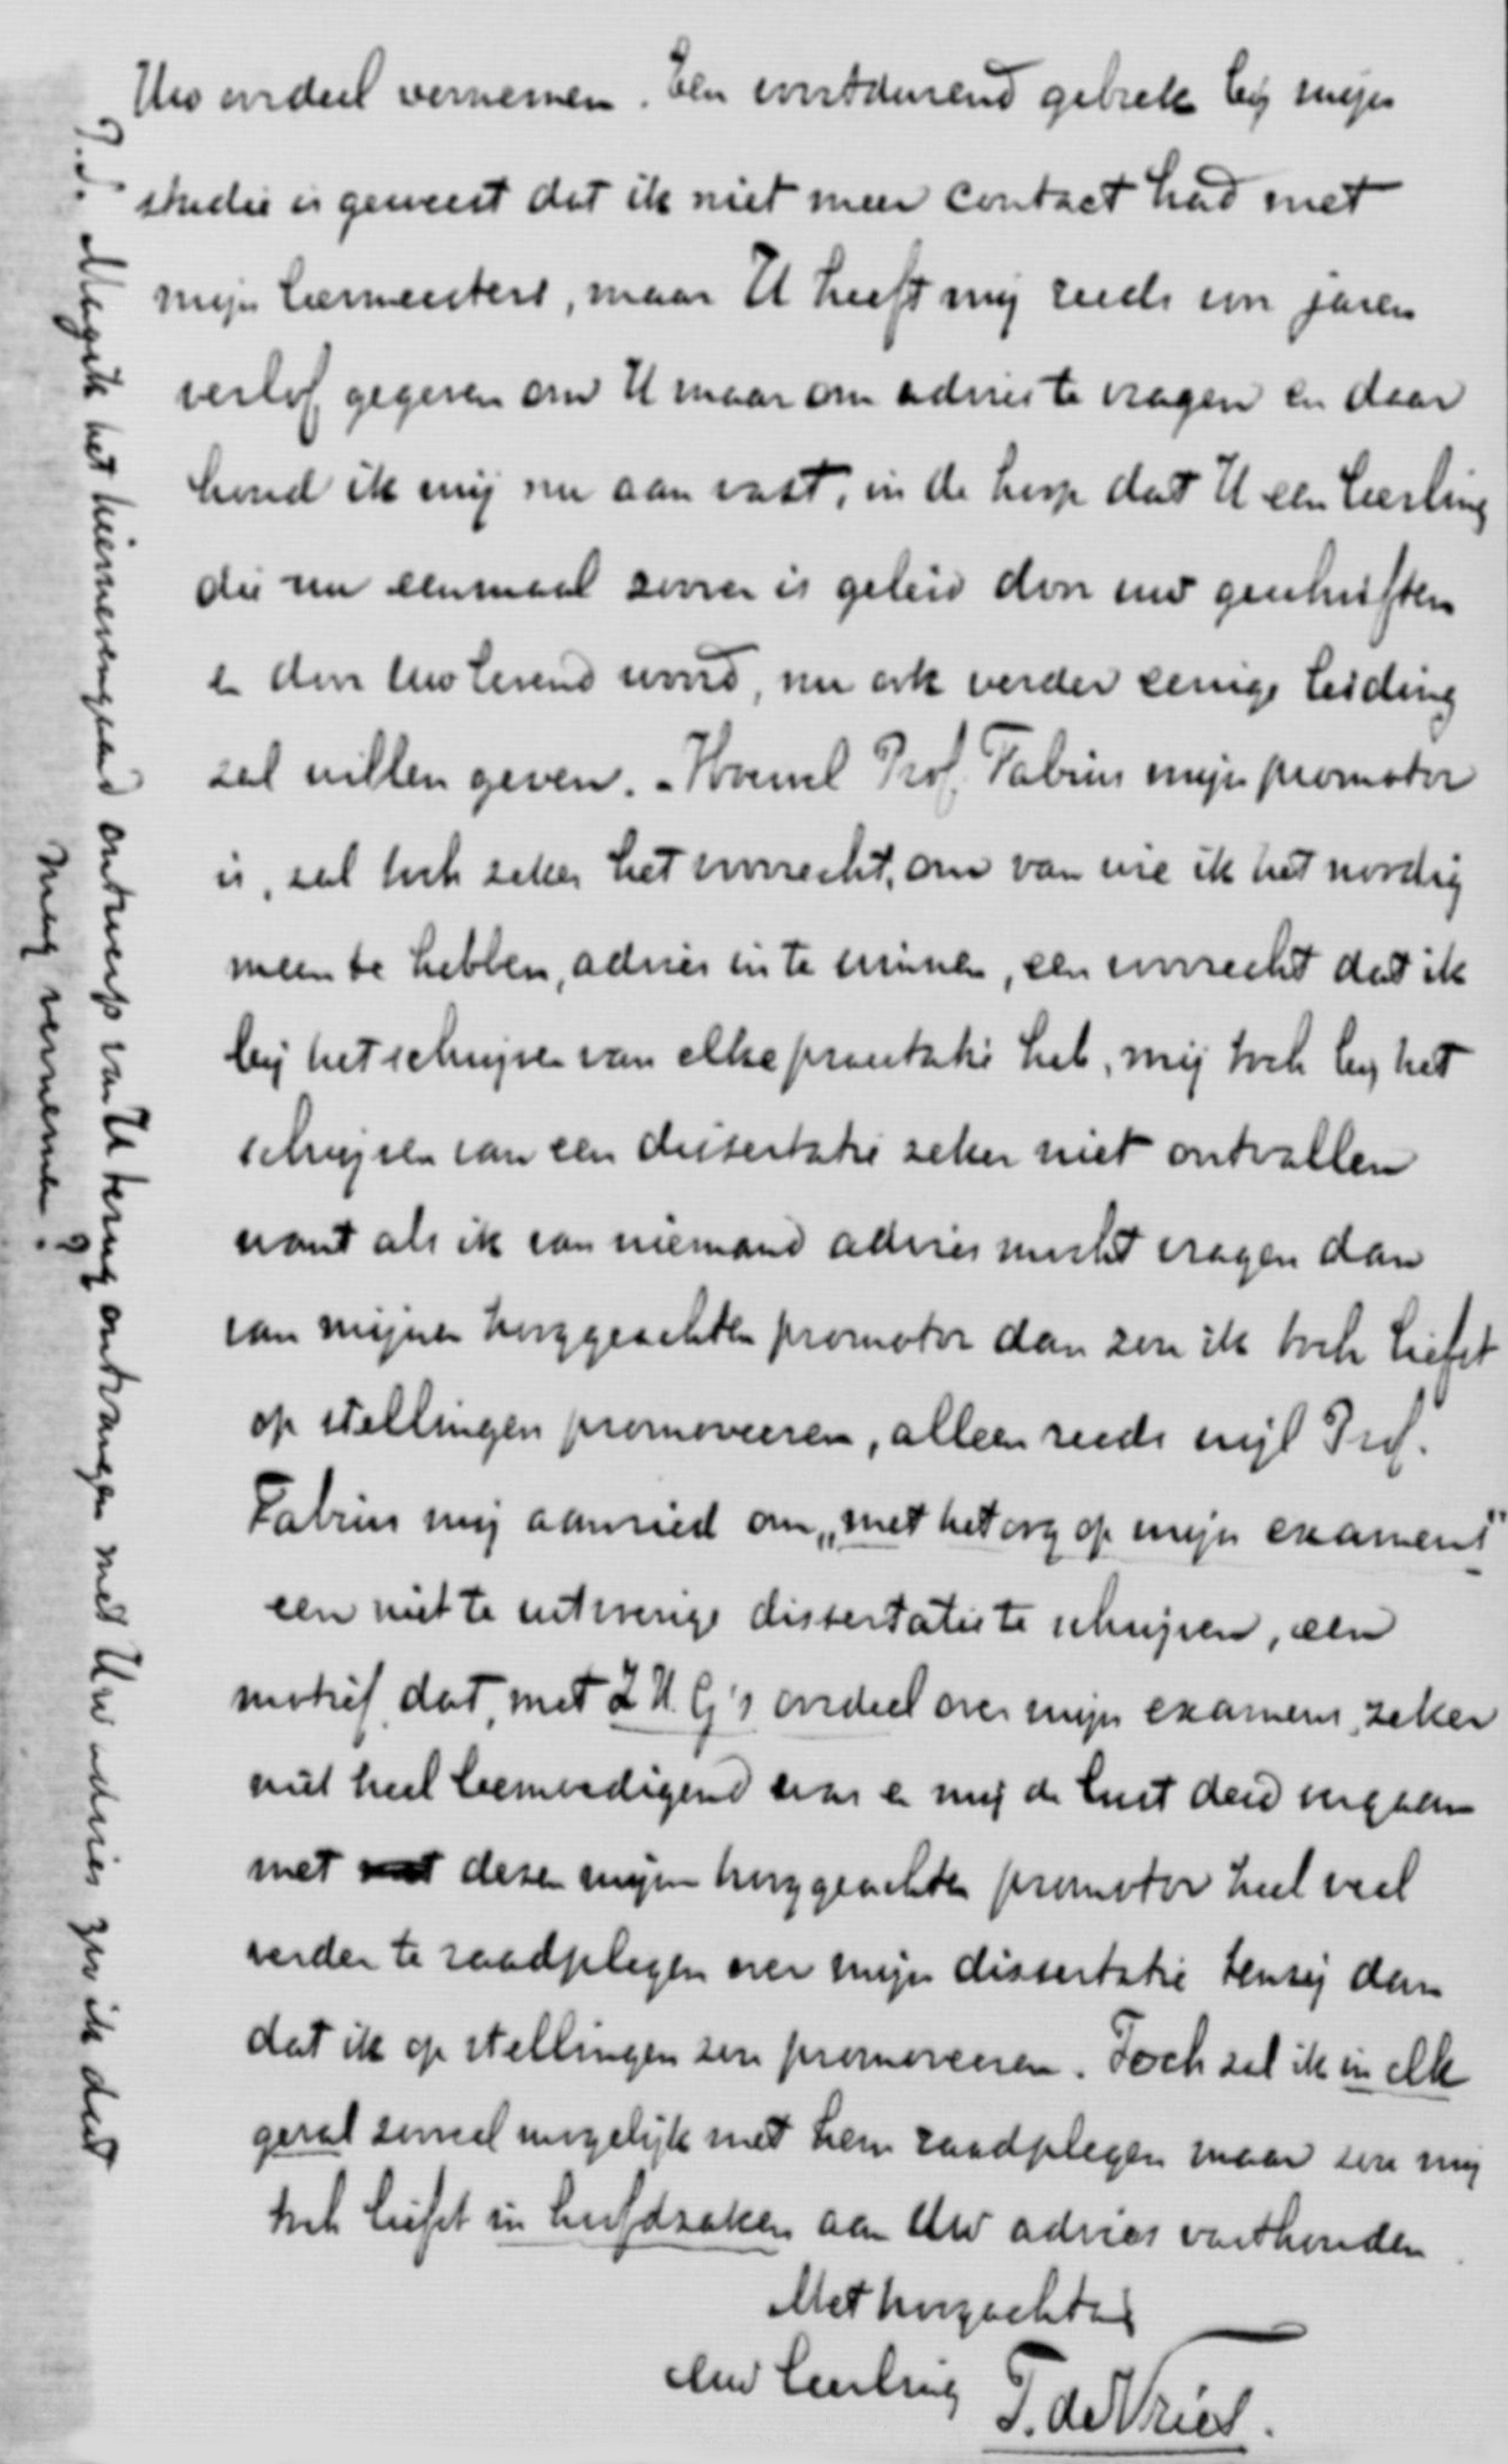 Uw oordeel vernemen. Een voortdurend gebrek bij mijn
studie is geweest dat ik niet meer contact had met
mijn leermeesters, maar U heeft mij reeds voor jaren
verlof gegeven om U maar om advies te vragen en daar
houd ik mij nu aan vast, in de hoop dat U een leerling
die nu eenmaal zoover is geleid door uw geschriften
en door Uw levend woord, nu ook verder eenige leiding
zal willen geven. - Hoewel Prof. Fabius mijn promotor
is, zal toch zeker het voorrecht, om van wie ik het noodig
meen te hebben, advies in te winnen, een voorrecht dat ik
bij het schrijven van elke prestatie heb, mij toch bij het
schrijven van een dissertatie zeker niet ontvallen
want als ik van niemand advies mocht vragen dan
van mijnen hooggeachten promotor dan zou ik toch liefst
op stellingen promoveeren, alleen reeds wijl Prof.
Fabius mij aanried om „met het oog op mijn examens"
een niet te uitvoerige dissertatie te schrijven, een
motief, dat, met Z H. G's oordeel over mijn examens, zeker
niet heel bemoedigend was en mij de lust deed vergaan
met deze mijn hooggeachten promotor heel veel
verder te raadplegen over mijn dissertatie tenzij dan
dat ik op stellingen zou promoveeren. Toch zal ik in elk
geval zooveel mogelijk met hem raadplegen maar zou mij
toch liefst in hoofdzaken aan Uw advies vasthouden
Met hoogachting
Uw leerling T. de Vries.
P.S. Mocht ik het hiernevengaand ontwerp van U terug ontvangen met Uw advies zoo ik dat
mag vernemen?